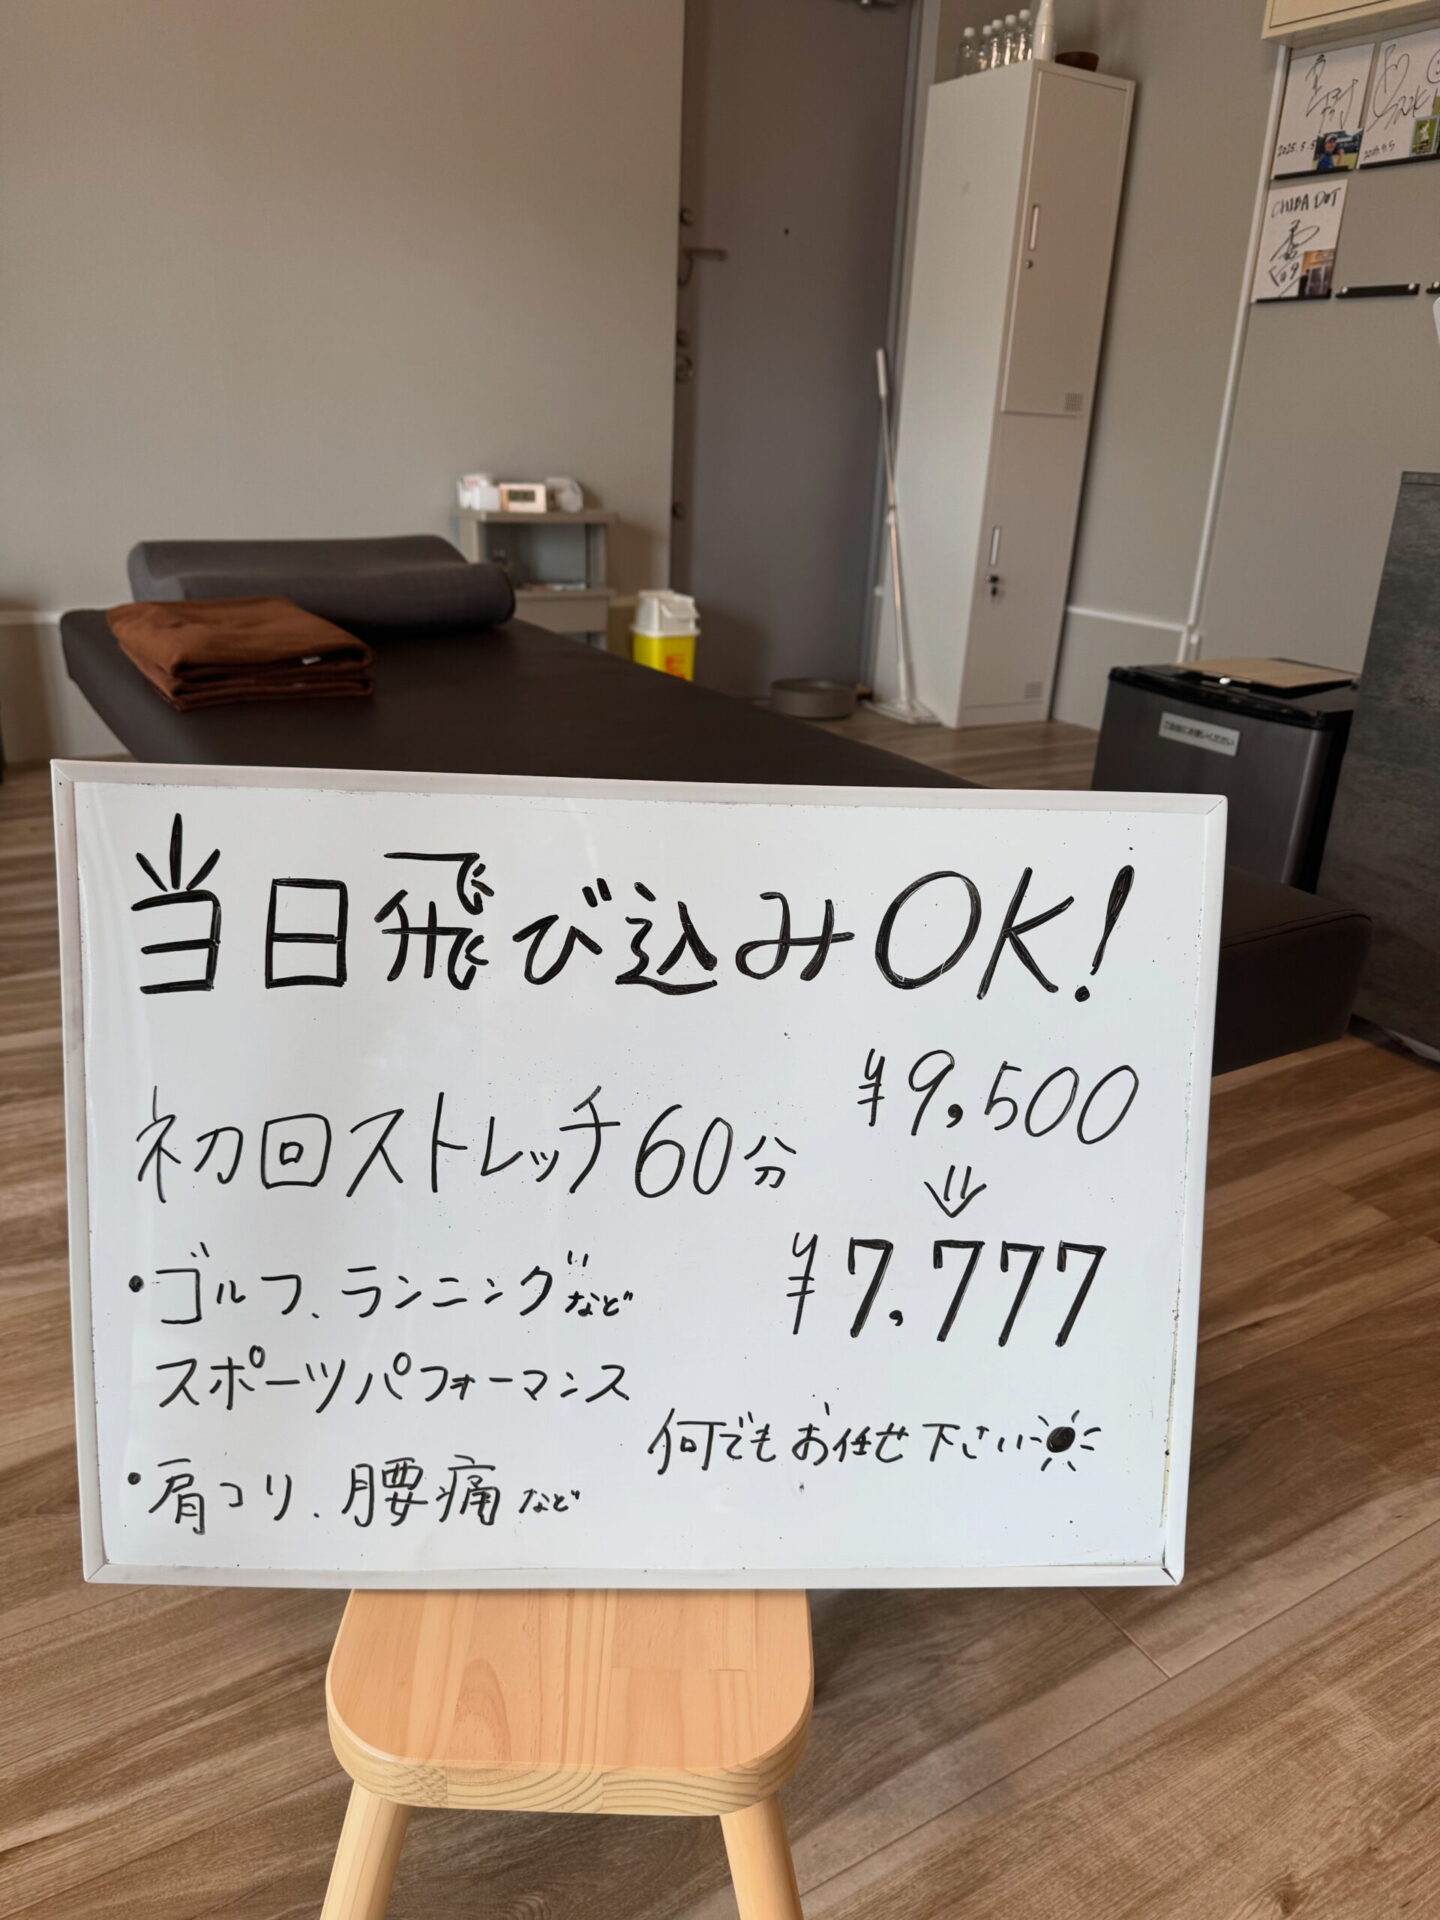 当日飛び込みOK!
初回ストレッチ60分
¥9,500
¥7,777
・ゴルフ、ランニングなど
スポーツパフォーマンス
・肩コリ、腰痛など
何でもお任せ下さい
CHIBA DOT
2025.5.5